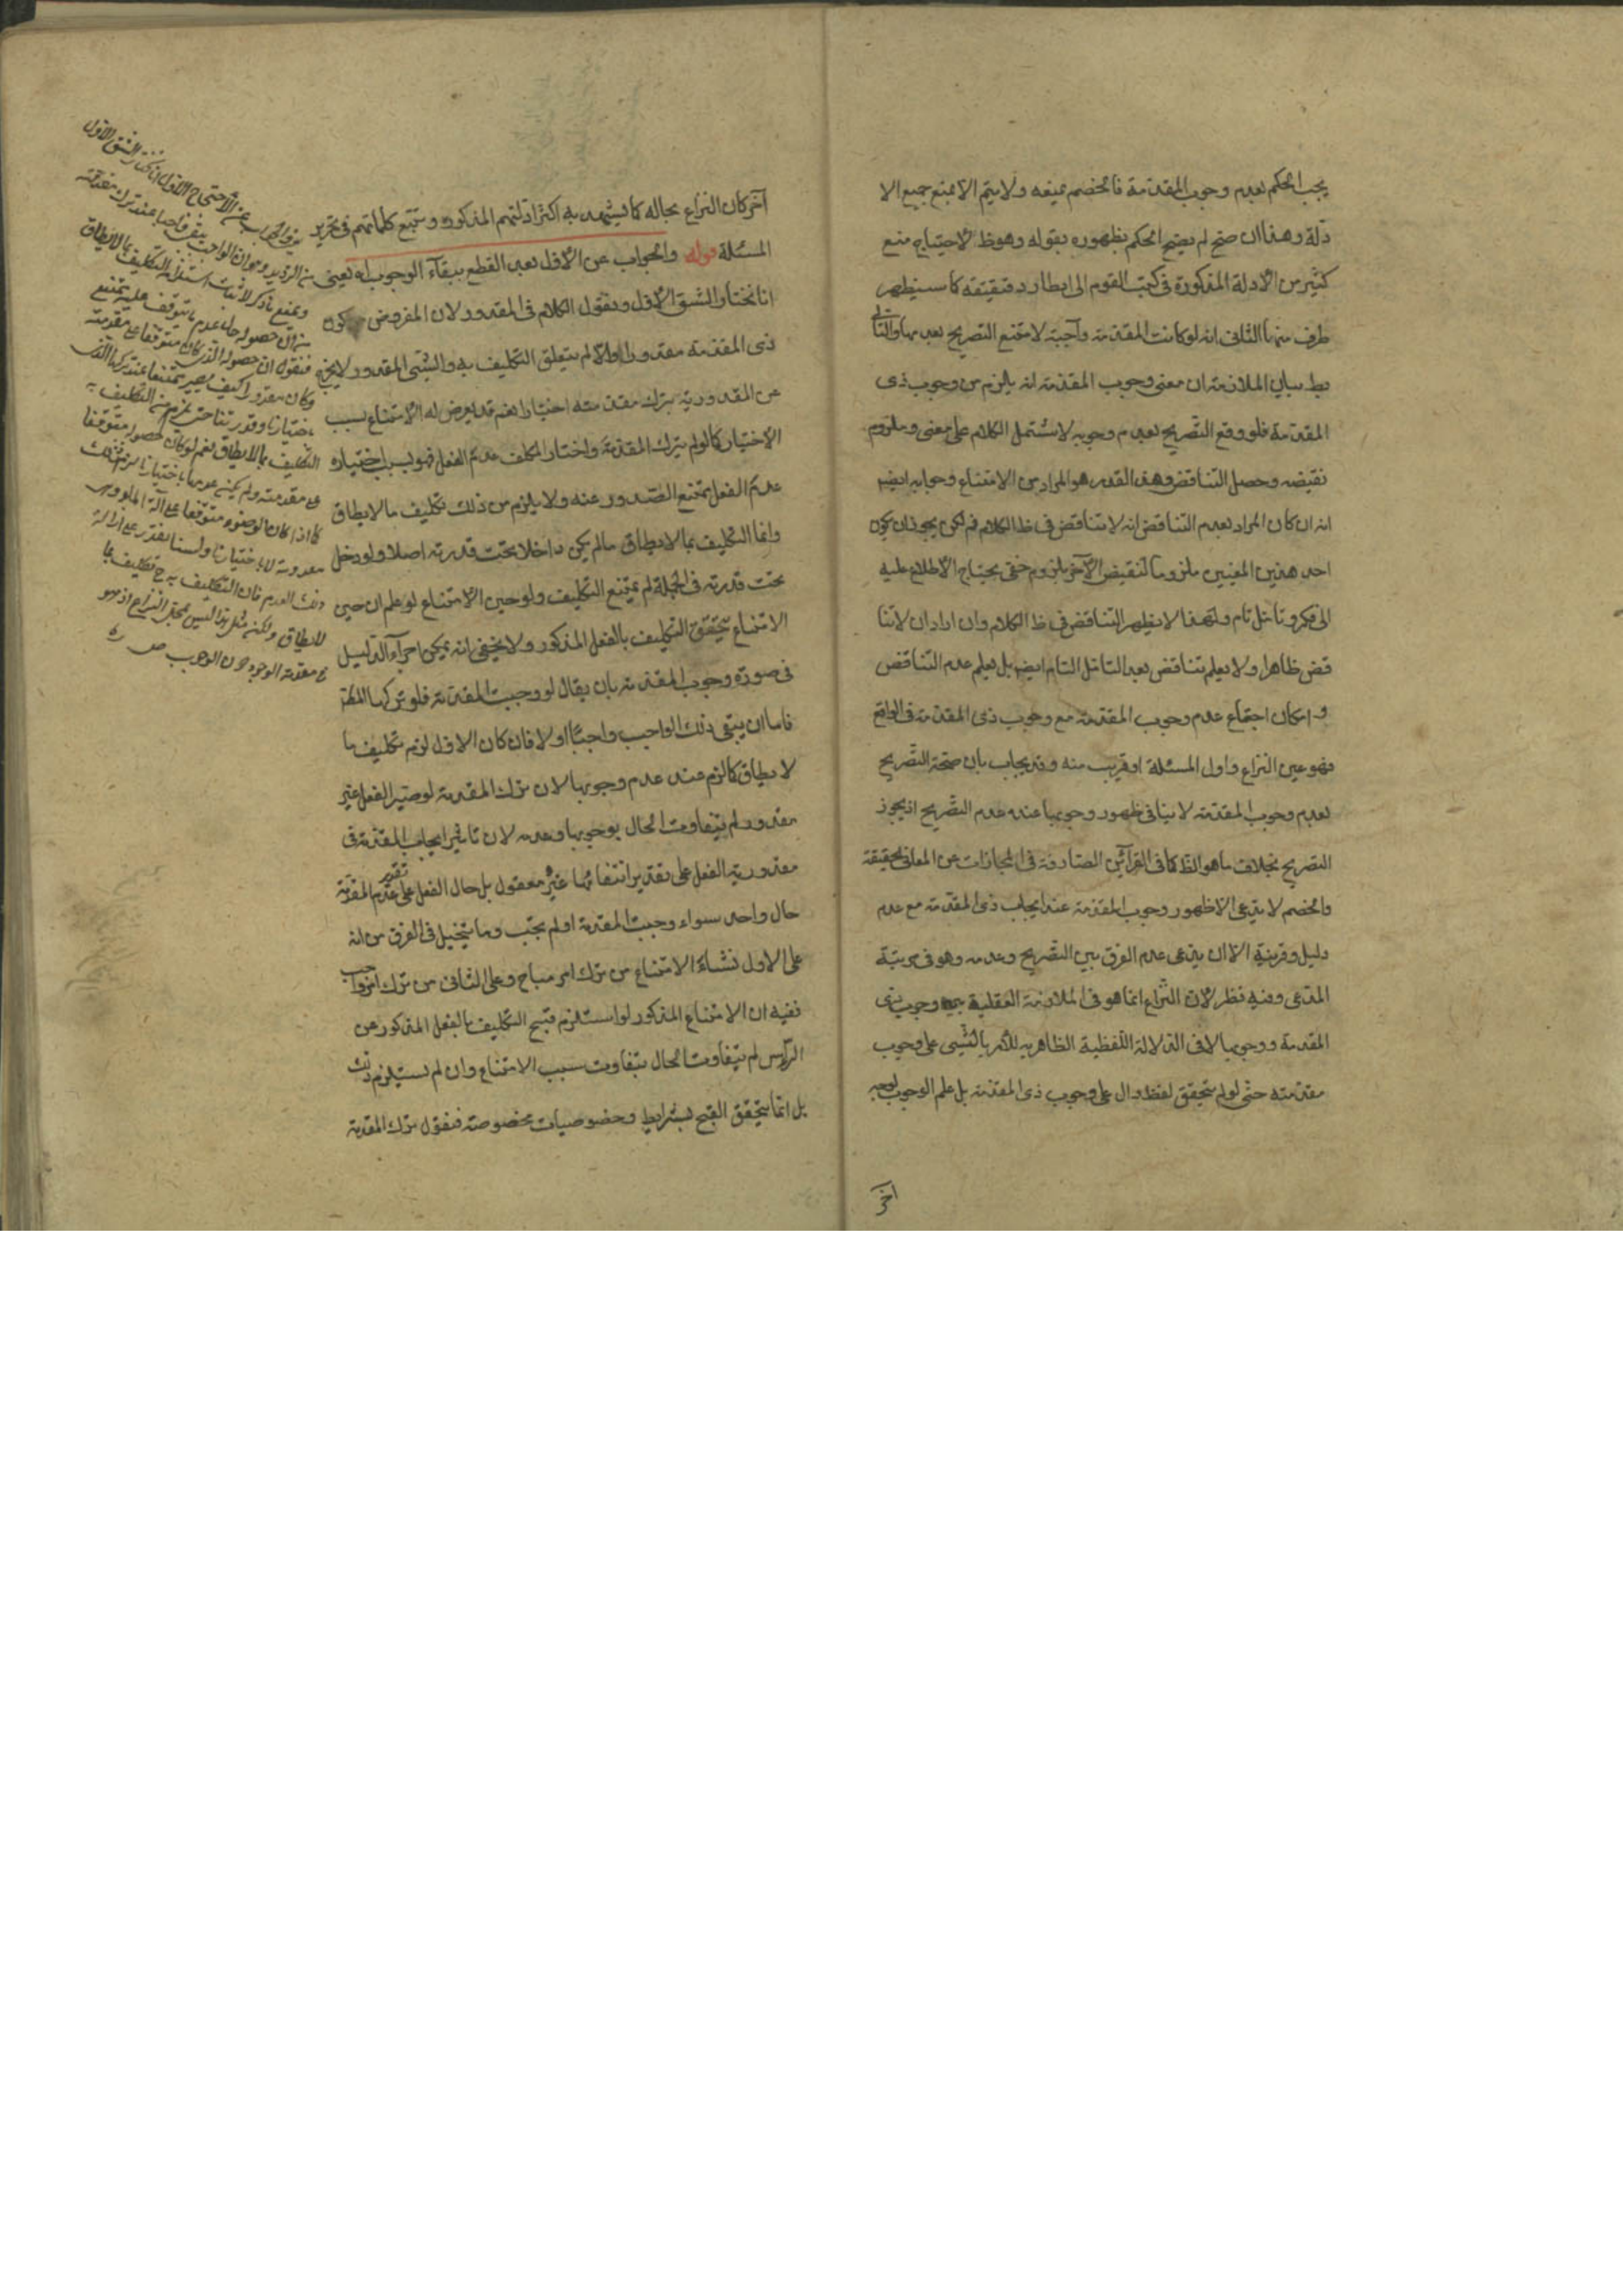 يجب الحكم بعدم وجوب المقدمة فالخصم يمنعه ولا يتم الا بمنع جميع الا
دلة وهذا ان صح لم يصح الحكم بظهوره بقوله وهو ظ لاحتياجه منع
كثير من الأدلة المذكورة في كتب القوم الى ابطار دقيقة كما سيظهر
طرف منها الثاني انه لو كانت المقدمة واجبة لامتنع التصريح بعدمها والتالي
بط بيان الملازمة ان معنى وجوب المقدمة انه يلزم من وجوب ذى
المقدمة فلو وقع التصريح بعدم وجوبه لاشتمل الكلام على معنى وملزوم
نقيضه وحصل التناقض وهذا القدر هو المراد من الامتناع وجوابه ايضا
انه ان كان المراد بعدم التناقض انه لا تناقض في ظ الكلام فم لكن يجوز ان يكون
احد هذين المعنيين ملزوما لنقيض الآخر بلزوم خفى يحتاج الاطلاع عليه
الى فكر وتأمل تام ولهذا لا يظهر التناقض في ظ الكلام وان اراد ان لا تنا
قض ظاهرا ولا يعلم تناقض بعد التامل التام ايضا بل يعلم عدم التناقض
وامكان اجتماع عدم وجوب المقدمة مع وجوب ذى المقدمة في الواقع
فهو عين النزاع واول المسئلة او قريب منه وقد يجاب بان صحة التصريح
بعدم وجوب المقدمة لا ينافي ظهور وجوبها عند عدم التصريح اذ يجوز
التصريح بخلاف ما هو الظ كما في القرآئن الصارفة في المجازات عن المعاني الحقيقة
والخصم لا يدعى الا ظهور وجوب المقدمة عند ايجاب ذى المقدمة مع عدم
دليل وقرينة الا ان يدعى عدم الفرق بين التصريح وعدمه وهو في مرتبة
المدعى وفيه نظر لان النزاع انما هو في الملازمة العقلية بين وجوب ذى
المقدمة ووجوبها لا في الدلالة اللفظية الظاهرية للأمر بالشئ على وجوب
مقدمته حتى لو لم يتحقق لفظ دال على وجوب ذى المقدمة بل علم الوجوب بوجه
اخر
آخر كان النزاع بحاله كما يشهد به اكثر ادلتهم المذكورة وتتبع كلماتهم في تحرير
المسئلة قوله والجواب عن الاول بعد القطع ببقآء الوجوب اه يعنى
انا نختار الشق الاول ونقول الكلام في المقدور لان المفروض كون
ذى المقدمة مقدورا والا لم يتعلق التكليف به والشئ المقدور لا يخرج
عن المقدورية بترك مقدمته اختيارا نعم قد يعرض له الامتناع بسبب
الاختيار كما لو لم يترك المقدمة واختار المكلف عدم الفعل فهو بسبب اختياره
عدم الفعل يمتنع الصدور عنه ولا يلزم من ذلك تكليف ما لا يطاق
وانما التكليف بما لا يطاق ما لم يكن داخلا تحت قدرته اصلا ولو دخل
تحت قدرته في الجملة لم يمتنع التكليف ولو حين الامتناع لو علم ان حين
الامتناع يتحقق التكليف بالفعل المذكور ولا يخفى انه يمكن اجرآء الدليل
في صورة وجوب المقدمة بان يقال لو وجبت المقدمة فلو تركها المكلف
فاما ان يبقى ذلك الواجب واجبا او لا فان كان الاول لزم تكليف ما
لا يطاق كما لزم عند عدم وجوبها لان ترك المقدمة لو صير الفعل غير
مقدور لم يتفاوت الحال بوجوبها وعدمه لان تاثير ايجاب المقدمة في
مقدورية الفعل على تقدير انتفائها غير معقول بل حال الفعل على تقدير عدم المقدمة
حال واحد سواء وجبت المقدمة او لم تجب وما يتخيل في الفرق من انه
على الاول نشاء الامتناع من ترك امر مباح وعلى الثاني من ترك امر واجب
ففيه ان الامتناع المذكور لو استلزم قبح التكليف بالفعل المذكور من
الراس لم يتفاوت الحال بتفاوت سبب الامتناع وان لم يستلزم ذلك
بل انما يتحقق القبح بشرايط وخصوصيات مخصوصة فنقول ترك المقدمة
الجواب عن الاحتجاج الاول انا نختار الشق الاول
من الترديد وهو ان الواجب يبقى واجبا عند ترك مقدمته
ونمنع ما ذكر لاثبات استلزامه التكليف بما لا يطاق
من ان حصوله حال عدم ما يتوقف عليه ممتنع
فنقول ان حصوله الذى كان متوقفا على مقدمته
وكان مقدورا كيف يصير ممتنعا عند تركها الذى
باختيارنا وقدرتنا حتى يلزم من التكليف به
التكليف بما لا يطاق نعم لو كان حصوله متوقفا
على مقدمته ولم يكن عدمها باختيارنا لزم ذلك
كما اذا كان الوضوء متوقفا على آلة الماء وهى
معدومة لا باختيارنا ولسنا نقدر على ازالة
ذلك العدم فان التكليف به ح تكليف بما
لا يطاق ولكن مثل هذا ليس محل النزاع اذ هو
مقدمة الوجود دون الوجوب